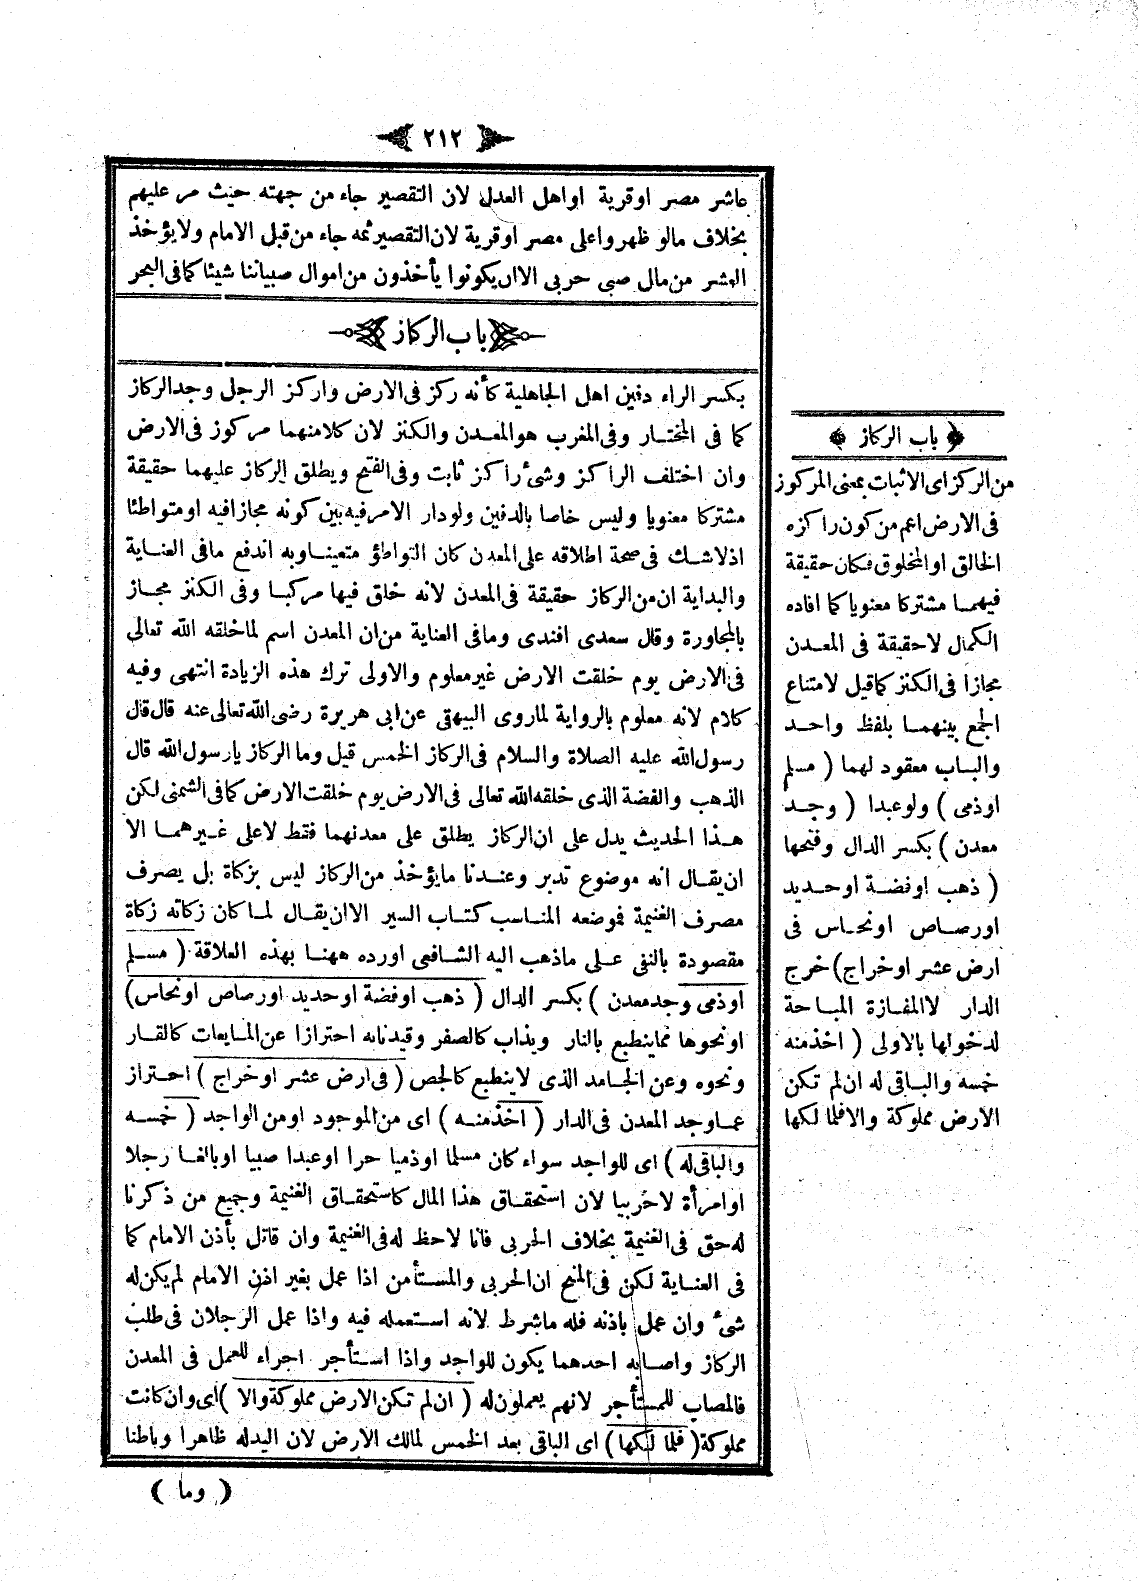 ﴿ ٢١٢ ﴾
عاشر مصر او قرية او اهل العدل لان التقصير جاء من جهته حيث مر عليهم
بخلاف مالو ظهروا على مصر او قرية لان التقصير ثمه جاء من قبل الامام ولا يؤخذ
العشر من مال صبى حربى الا ان يكونوا يأخذون من اموال صبياننا شيئا كما فى البحر
﴿ باب الركاز ﴾
بكسر الراء دفين اهل الجاهلية كأنه ركز فى الارض واركز الرجل وجد الركاز
كما فى المختار وفى المغرب هو المعدن والكنز لان كلا منهما مركوز فى الارض
وان اختلف الراكز وشئ راكز ثابت وفى الفتح ويطلق الركاز عليهما حقيقة
مشتركا معنويا وليس خاصا بالدفين ولو دار الامر فيه بين كونه مجازا فيه او متواطئا
اذ لا شك فى صحة اطلاقه على المعدن كان التواطؤ متعينا وبه اندفع ما فى العناية
والبداية ان من الركاز حقيقة فى المعدن لانه خلق فيها مركبا وفى الكنز مجاز
بالمجاورة وقال سعدى افندى وما فى العناية من ان المعدن اسم لما خلقه الله تعالى
فى الارض يوم خلقت الارض غير معلوم والاولى ترك هذه الزيادة انتهى وفيه
كلام لانه معلوم بالرواية لما روى البيهقى عن ابى هريرة رضى الله تعالى عنه قال قال
رسول الله عليه الصلاة والسلام فى الركاز الخمس قيل وما الركاز يا رسول الله قال
الذهب والفضة الذى خلقه الله تعالى فى الارض يوم خلقت الارض كما فى الشمنى لكن
هذا الحديث يدل على ان الركاز يطلق على معدنهما فقط لا على غيرهما الا
ان يقال انه موضوع تدبر وعندنا ما يؤخذ من الركاز ليس بزكاة بل يصرف
مصرف الغنيمة فموضعه المناسب كتاب السير الا ان يقال لما كان زكاته زكاة
مقصودة بالنفى على ما ذهب اليه الشافعى اورده ههنا بهذه العلاقة ( مسلم
او ذمى وجد معدن ) بكسر الدال ( ذهب او فضة او حديد او رصاص او نحاس )
او نحوها مما ينطبع بالنار ويذاب كالصفر وقيدنا به احترازا عن المايعات كالقار
ونحوه وعن الجامد الذى لا ينطبع كالجص ( فى ارض عشر او خراج ) احتراز
عما وجد المعدن فى الدار ( اخذ منه ) اى من الموجود او من الواجد ( خمسه
والباقى له ) اى للواجد سواء كان مسلما او ذميا حرا او عبدا صبيا او بالغا رجلا
او امرأة لا حربيا لان استحقاق هذا المال كاستحقاق الغنيمة وجميع من ذكرنا
له حق فى الغنيمة بخلاف الحربى فانا لا حظ له فى الغنيمة وان قاتل بأذن الامام كما
فى العناية لكن فى المنح ان الحربى والمستأمن اذا عمل بغير اذن الامام لم يكن له
شئ وان عمل باذنه فله ما شرط لانه استعمله فيه واذا عمل الرجلان فى طلب
الركاز واصابه احدهما يكون للواجد واذا استأجر اجراء للعمل فى المعدن
فالمصاب للمستأجر لانهم يعملون له ( ان لم تكن الارض مملوكة والا ) اى وان كانت
مملوكة ( فلما لكها ) اى الباقى بعد الخمس لمالك الارض لان اليد له ظاهرا وباطنا
( وما )
﴿ باب الركاز ﴾
من الركز اى الاثبات بمعنى المركوز
فى الارض اعم من كون راكزه
الخالق او المخلوق فكان حقيقة
فيهما مشتركا معنويا كما افاده
الكمال لا حقيقة فى المعدن
مجازا فى الكنز كما قيل لامتناع
الجمع بينهما بلفظ واحد
والباب معقود لهما ( مسلم
او ذمى ) ولو عبدا ( وجد
معدن ) بكسر الدال وفتحها
( ذهب او فضة او حديد
او رصاص او نحاس فى
ارض عشر او خراج ) خرج
الدار لا المفازة المباحة
لدخولها بالاولى ( اخذ منه
خمسه والباقى له ان لم تكن
الارض مملوكة والا فلما لكها